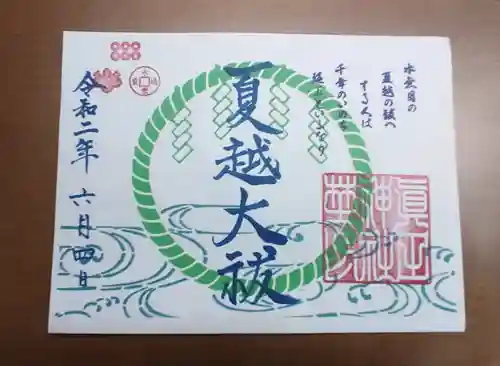 水無月の
夏越の祓へ
する人は
千年のいのち
延ぶといふなり
夏越大祓
令和二年 六月四日